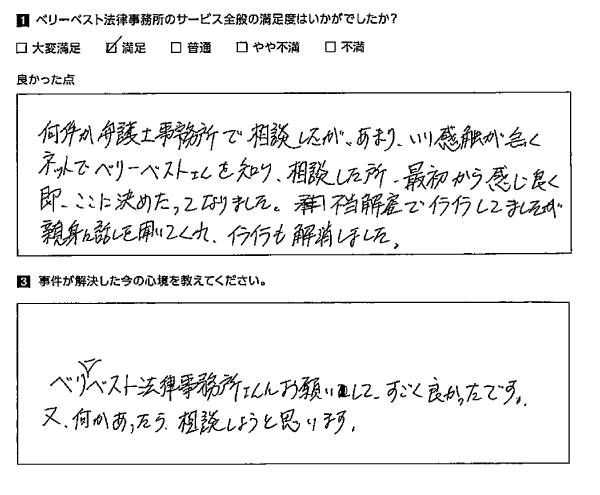 1 ベリーベスト法律事務所のサービス全般の満足度はいかがでしたか?
□ 大変満足 ☑ 満足 □ 普通 □ やや不満 □ 不満
良かった点
何件か弁護士事務所で相談したが、あまり、いい感触が無く
ネットでベリーベストさんを知り、相談した所、最初から感じ良く
即、ここに決めたってなりました。不当解雇でイライラしてましたが
親身に話しを聞いてくれ、イライラも解消しました。
3 事件が解決した今の心境を教えてください。
ベリーベスト法律事務所さんにお願いして、すごく良かったです。
又、何かあったら、相談しようと思います。